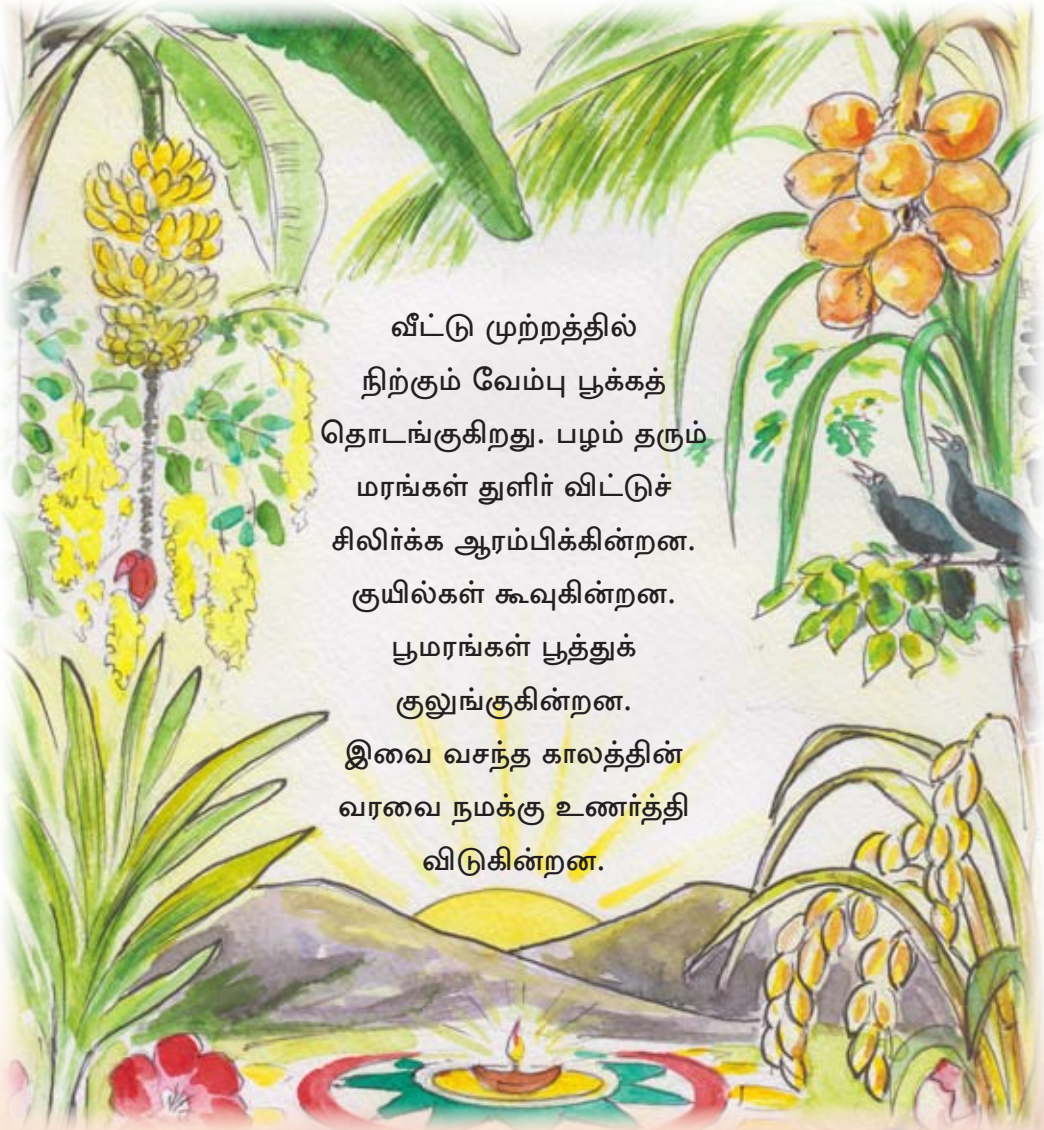 வீட்டு முற்றத்தில்
நிற்கும் வேம்பு பூக்கத்
தொடங்குகிறது. பழம் தரும்
மரங்கள் துளிர் விட்டுச்
சிலிர்க்க ஆரம்பிக்கின்றன.
குயில்கள் கூவுகின்றன.
பூமரங்கள் பூத்துக்
குலுங்குகின்றன.
இவை வசந்த காலத்தின்
வரவை நமக்கு உணர்த்தி
விடுகின்றன.